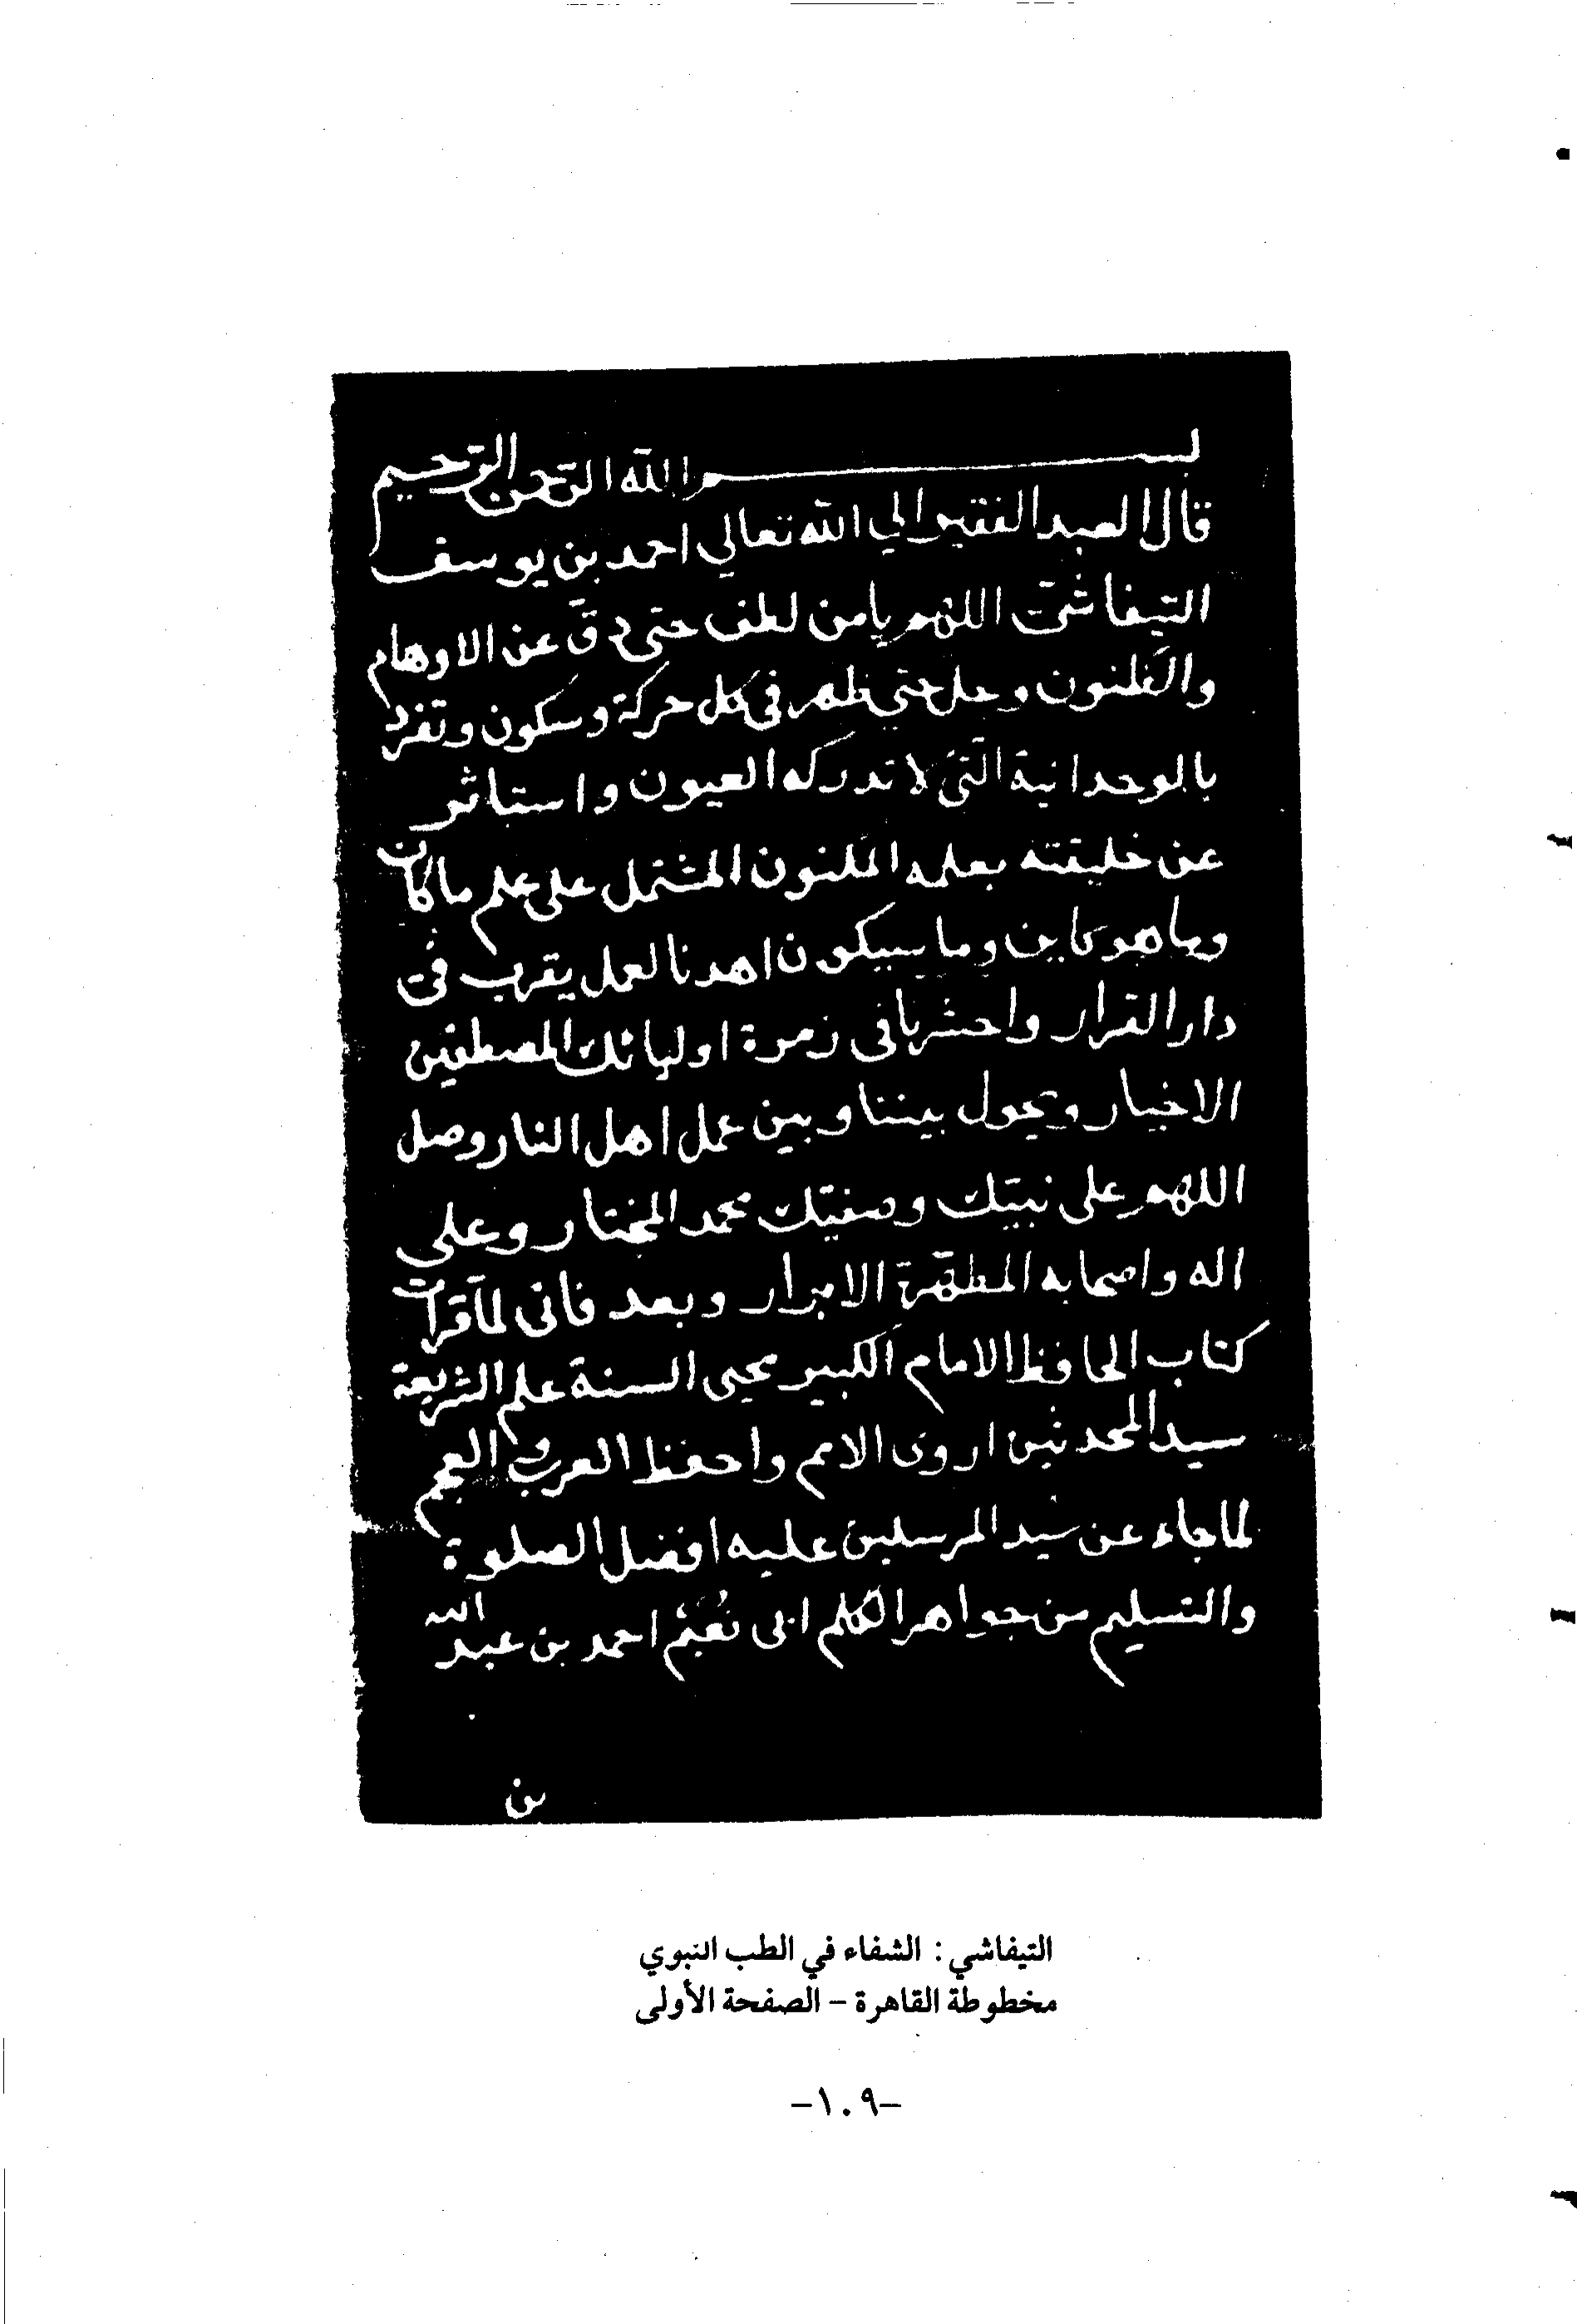 بسم الله الرحمن الرحيم
قال العبد الفقير الي الله تعالي احمد بن يوسف
التيفاشى اللهم يا من لطف حتى دقّ عن الاوهام
والظنون وجل حتى ظهر فى كل حركة وسكون وتفرد
بالوحدانية التى لا تدركه العيون واستاثر
عن خليقته بعلمه المكنون المشتمل على علم ما كان
وما هو كاين وما سيكون اهدنا لعمل يقرب فى
دار القرار واحشرنا فى زمرة اوليائك المصطفين
الاخيار وتحول بيننا وبين عمل اهل النار وصل
اللهم على نبيّك وصفيّك محمد المختار وعلى
اله واصحابه المطهّرة الابرار وبعد فانى لمّا قرات
كتاب الحافظ الامام الكبير محيى السنة علم الشريعة
سيد المحدثين اروى الامم واحفظ العرب والعجم
لما جاء عن سيد المرسلين عليه افضل الصلوة
والتسليم من جواهر الكلم ابى نُعَيْم احمد بن عبد الله
بن
التيفاشي : الشفاء في الطب النبوي
مخطوطة القاهرة – الصفحة الأولى
–١٠٩–